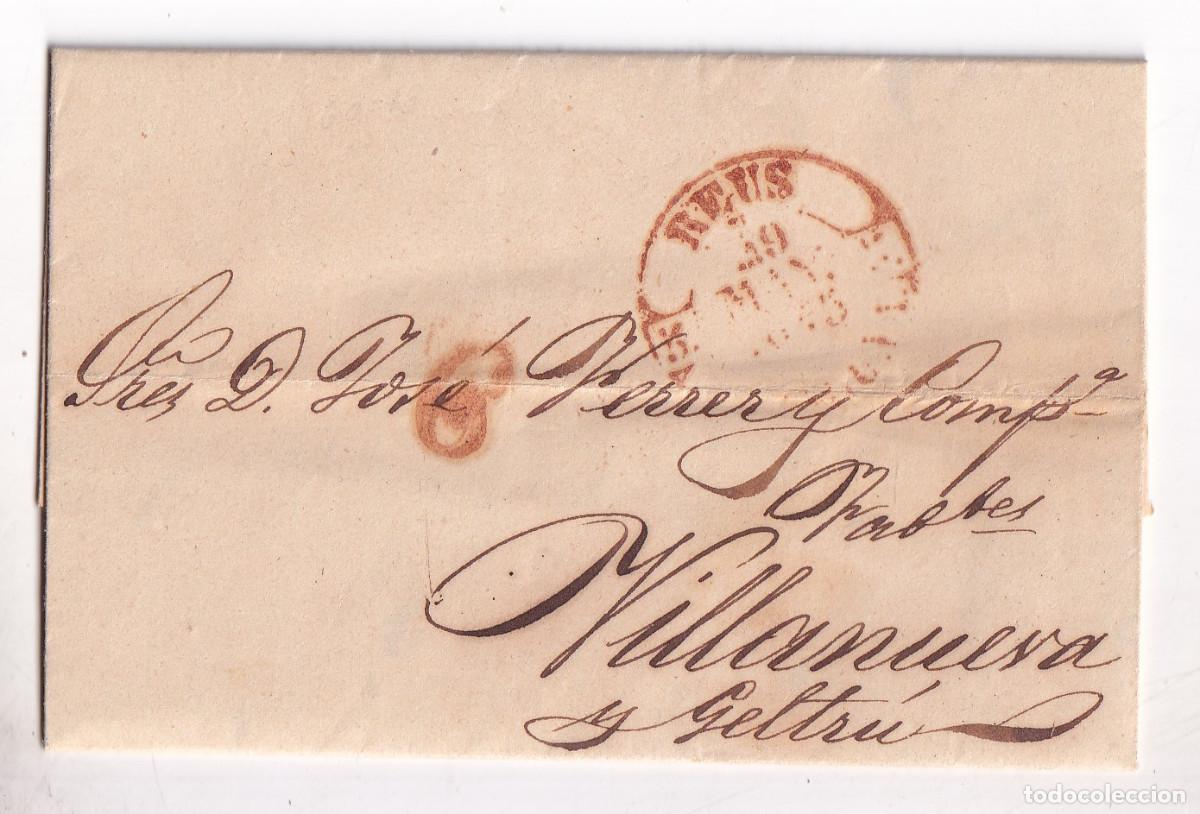 REUS
19
MAY
Sres D. José Ferrer y Compª
6
Fabtes
Villanueva
y Geltrú
todocoleccion